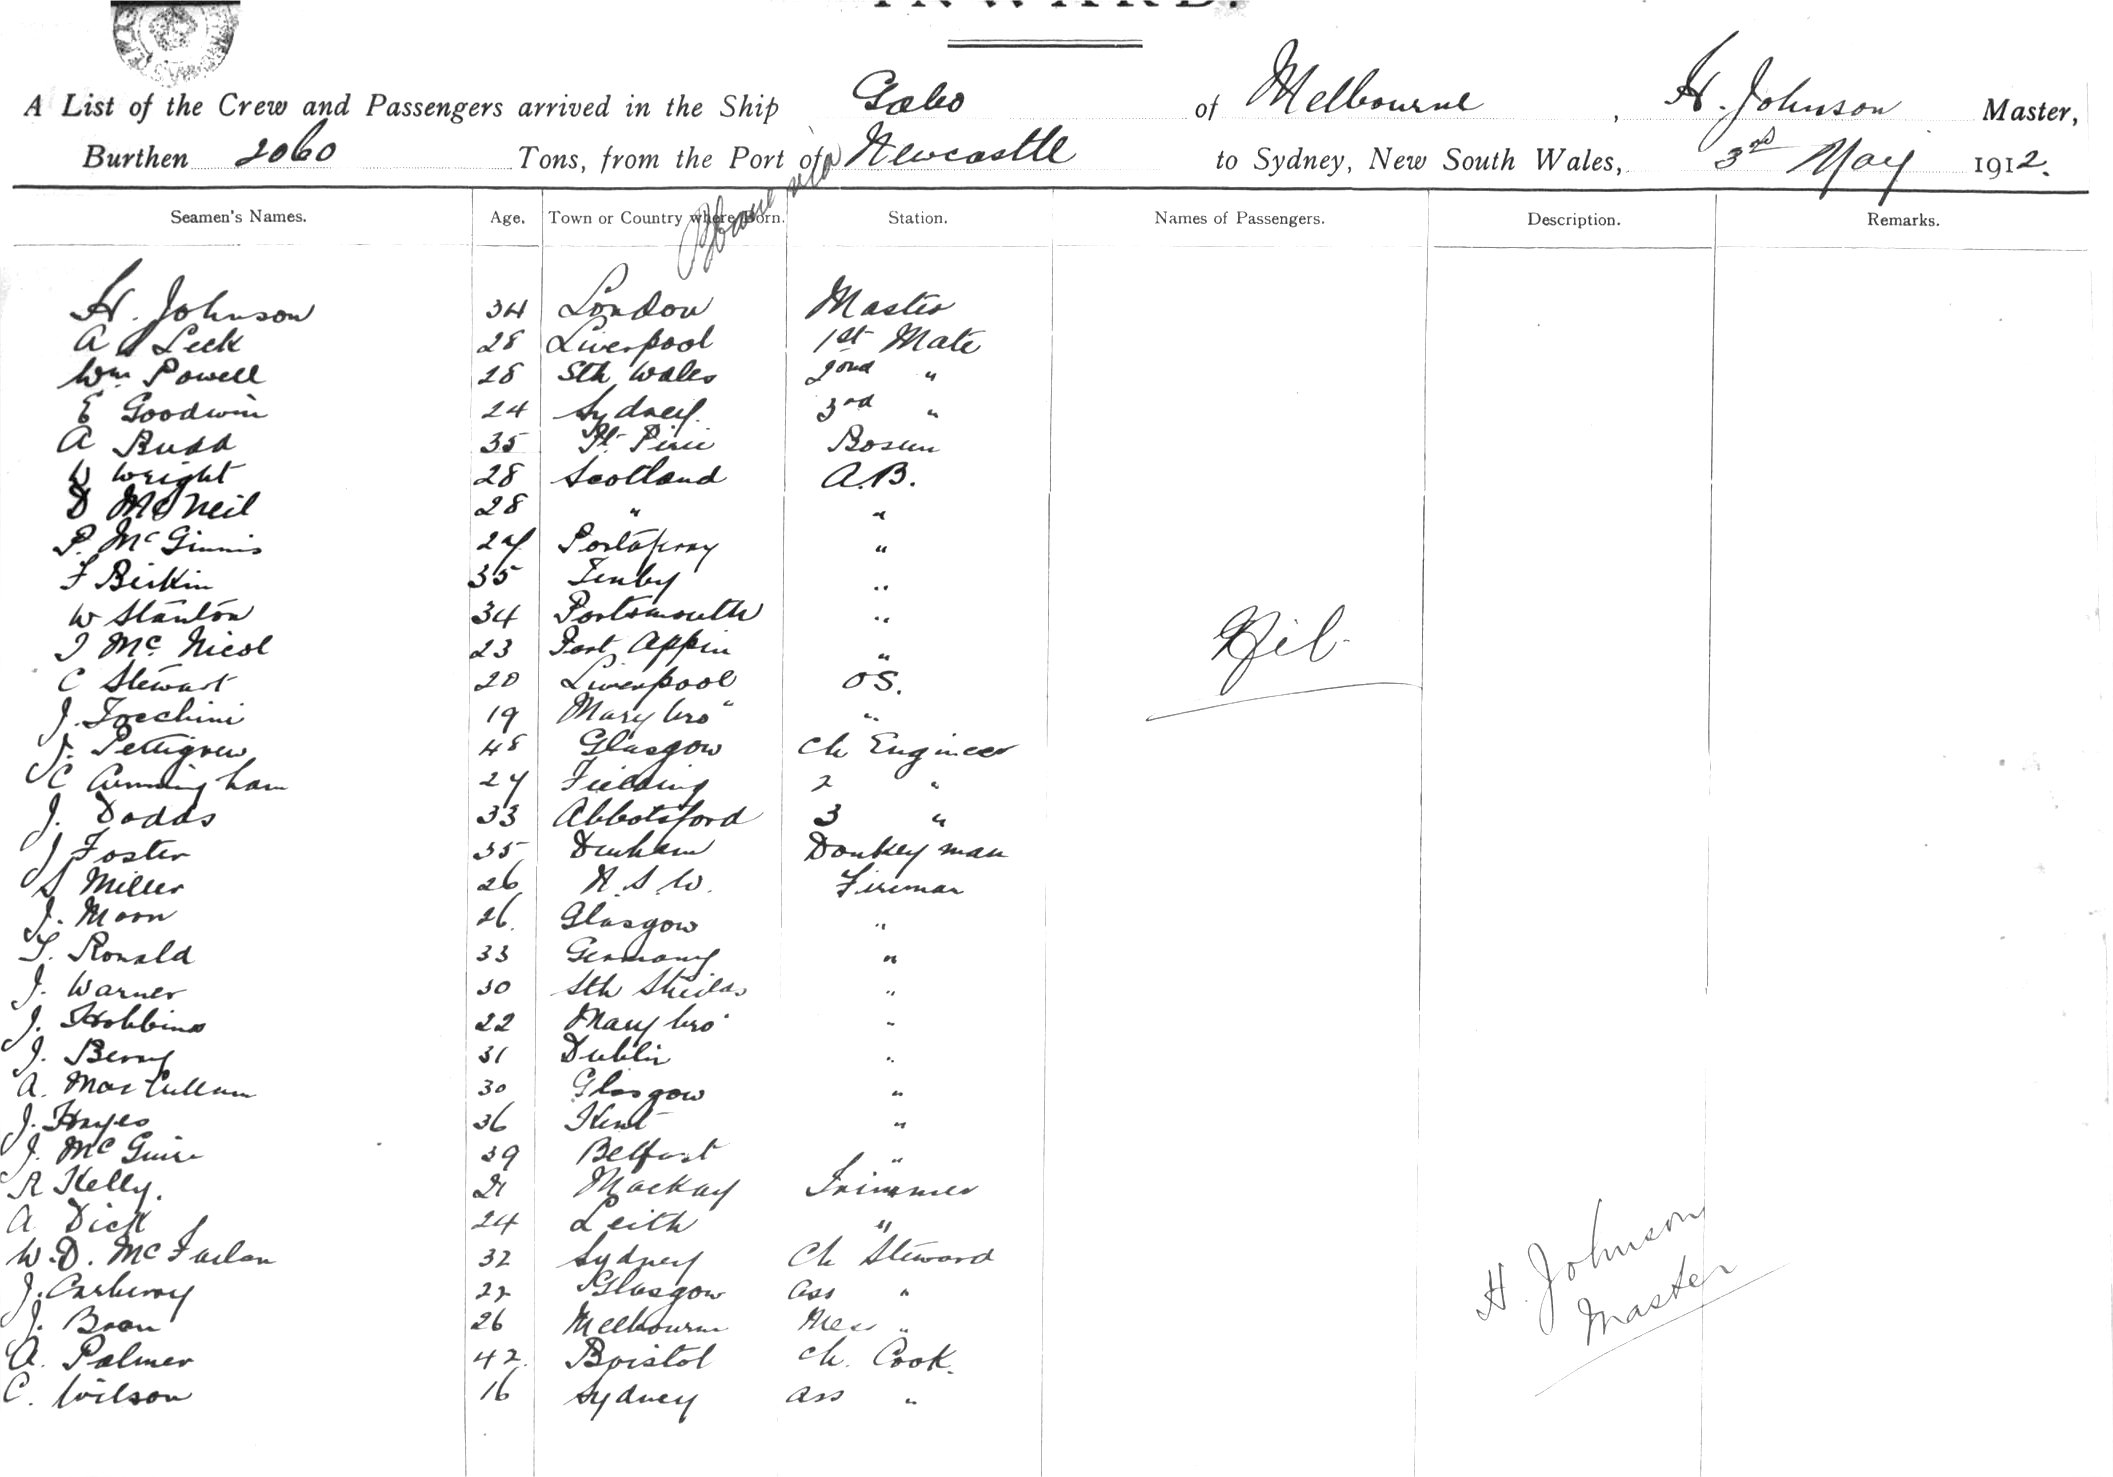 INWARD.
A List of the Crew and Passengers arrived in the Ship Gabo of Melbourne, H. Johnson Master,
Burthen 2060 Tons, from the Port of Newcastle to Sydney, New South Wales, 3rd May 1912.
via
Seamen's Names. Age. Town or Country where Born. Station. Names of Passengers. Description. Remarks.
H. Johnson 34 London Master
A Leck 28 Liverpool 1st Mate
Wm Powell 28 Sth Wales 2ond "
E Goodwin 24 Sydney. 3rd "
A Rudd 35 Pt Pirie Bosun
W Wright 28 Scotland A.B.
D McNeil 28 " "
P. McGinnis 27 Portaferry "
F Birkin 35 Tenby "
W Stanton 34 Portsmouth "
J McNicol 23 Port Appin "
C Stewart 20 Liverpool OS.
J. Focchini 19 Marybro "
J. Pettigrew 48 Glasgow Ch Engineer
C Cunningham 27 Fielding 2 "
J. Dodds 33 Abbotsford 3 "
J Foster 35 Durham Donkeyman
S Miller 26 N.S.W. Fireman
J. Moon 26 Glasgow "
T. Ronald 33 Germany "
J. Warner 30 Sth Shields "
J. Hobbins 22 Marybro "
J. Berry 31 Dublin "
A. MacCullum 30 Glasgow "
J. Hayes 36 Kent "
J. McGuire 39 Belfast "
R Kelly. 21 Mackay Trimmer
A Dick 24 Leith "
W.D. McFarlan 32 Sydney Ch Steward
J. Carberry 22 Glasgow ass "
J. Bran 26 Melbourne Mess "
A. Palmer 42. Bristol Ch. Cook.
C. Wilson 16 Sydney ass "
Nil
H. Johnson
Master